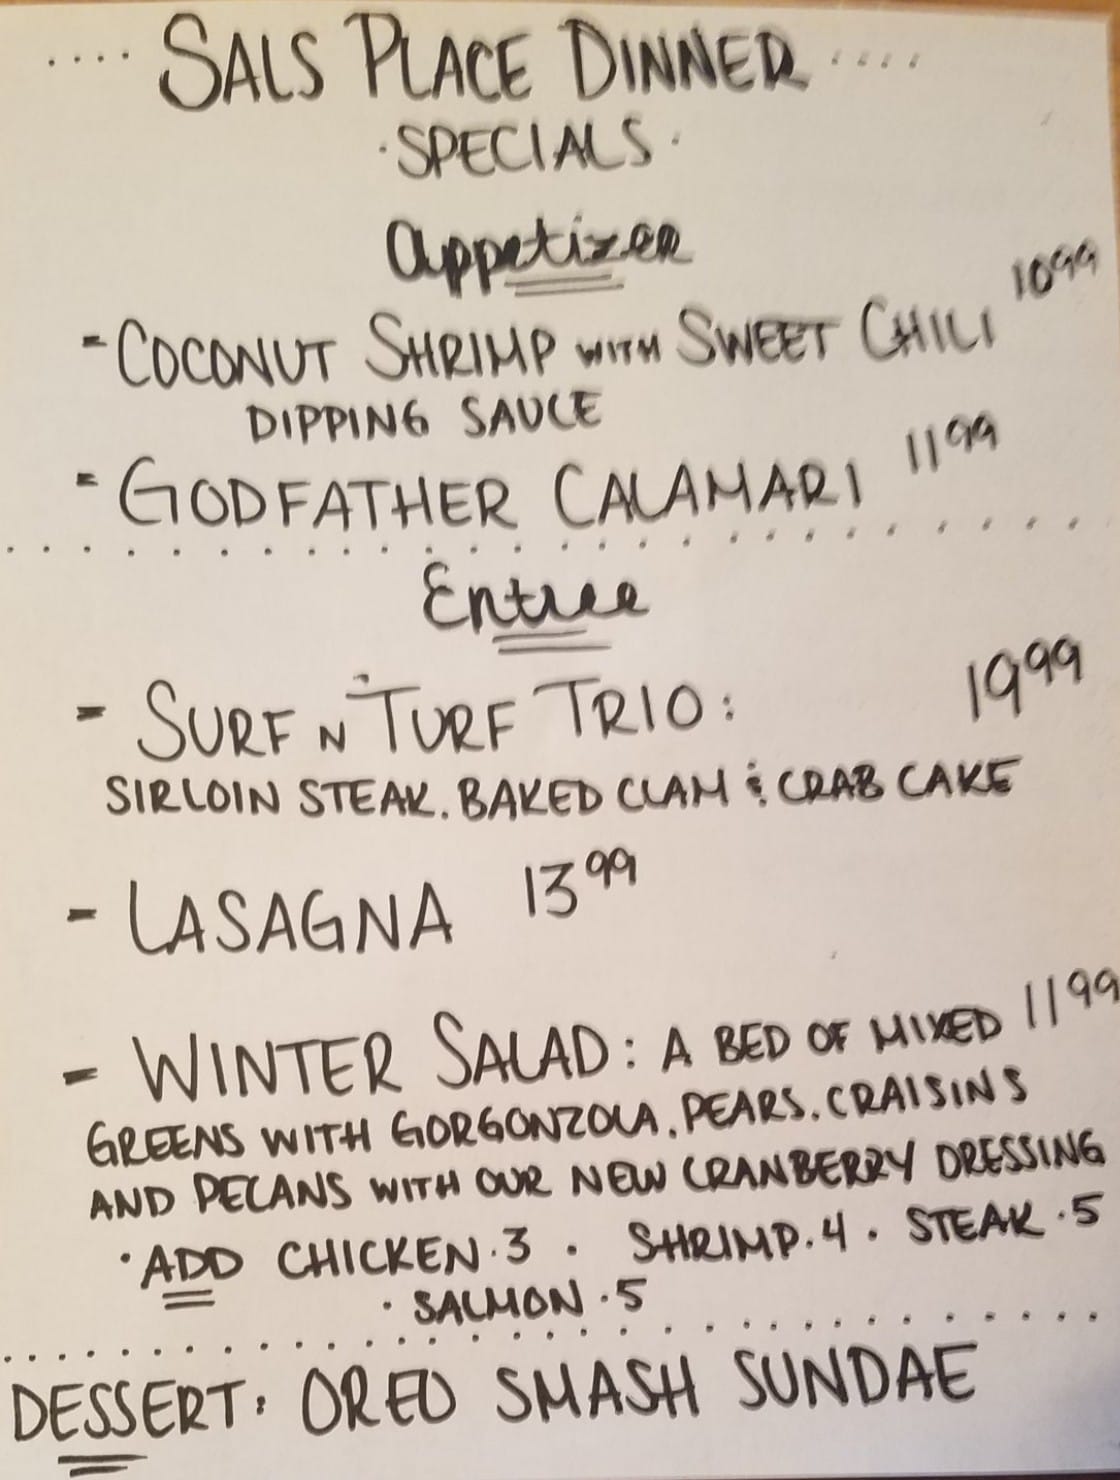 .... SALS PLACE DINNER ....
· SPECIALS ·
Appetizer
- COCONUT SHRIMP WITH SWEET CHILI 10 99
DIPPING SAUCE
- GODFATHER CALAMARI 11 99
Entree
- SURF N' TURF TRIO: 19 99
SIRLOIN STEAK. BAKED CLAM & CRAB CAKE
- LASAGNA 13 99
- WINTER SALAD: A BED OF MIXED 11 99
GREENS WITH GORGONZOLA. PEARS. CRAISINS
AND PECANS WITH OUR NEW CRANBERRY DRESSING
· ADD CHICKEN · 3 · SHRIMP · 4 · STEAK · 5
· SALMON · 5
DESSERT: OREO SMASH SUNDAE